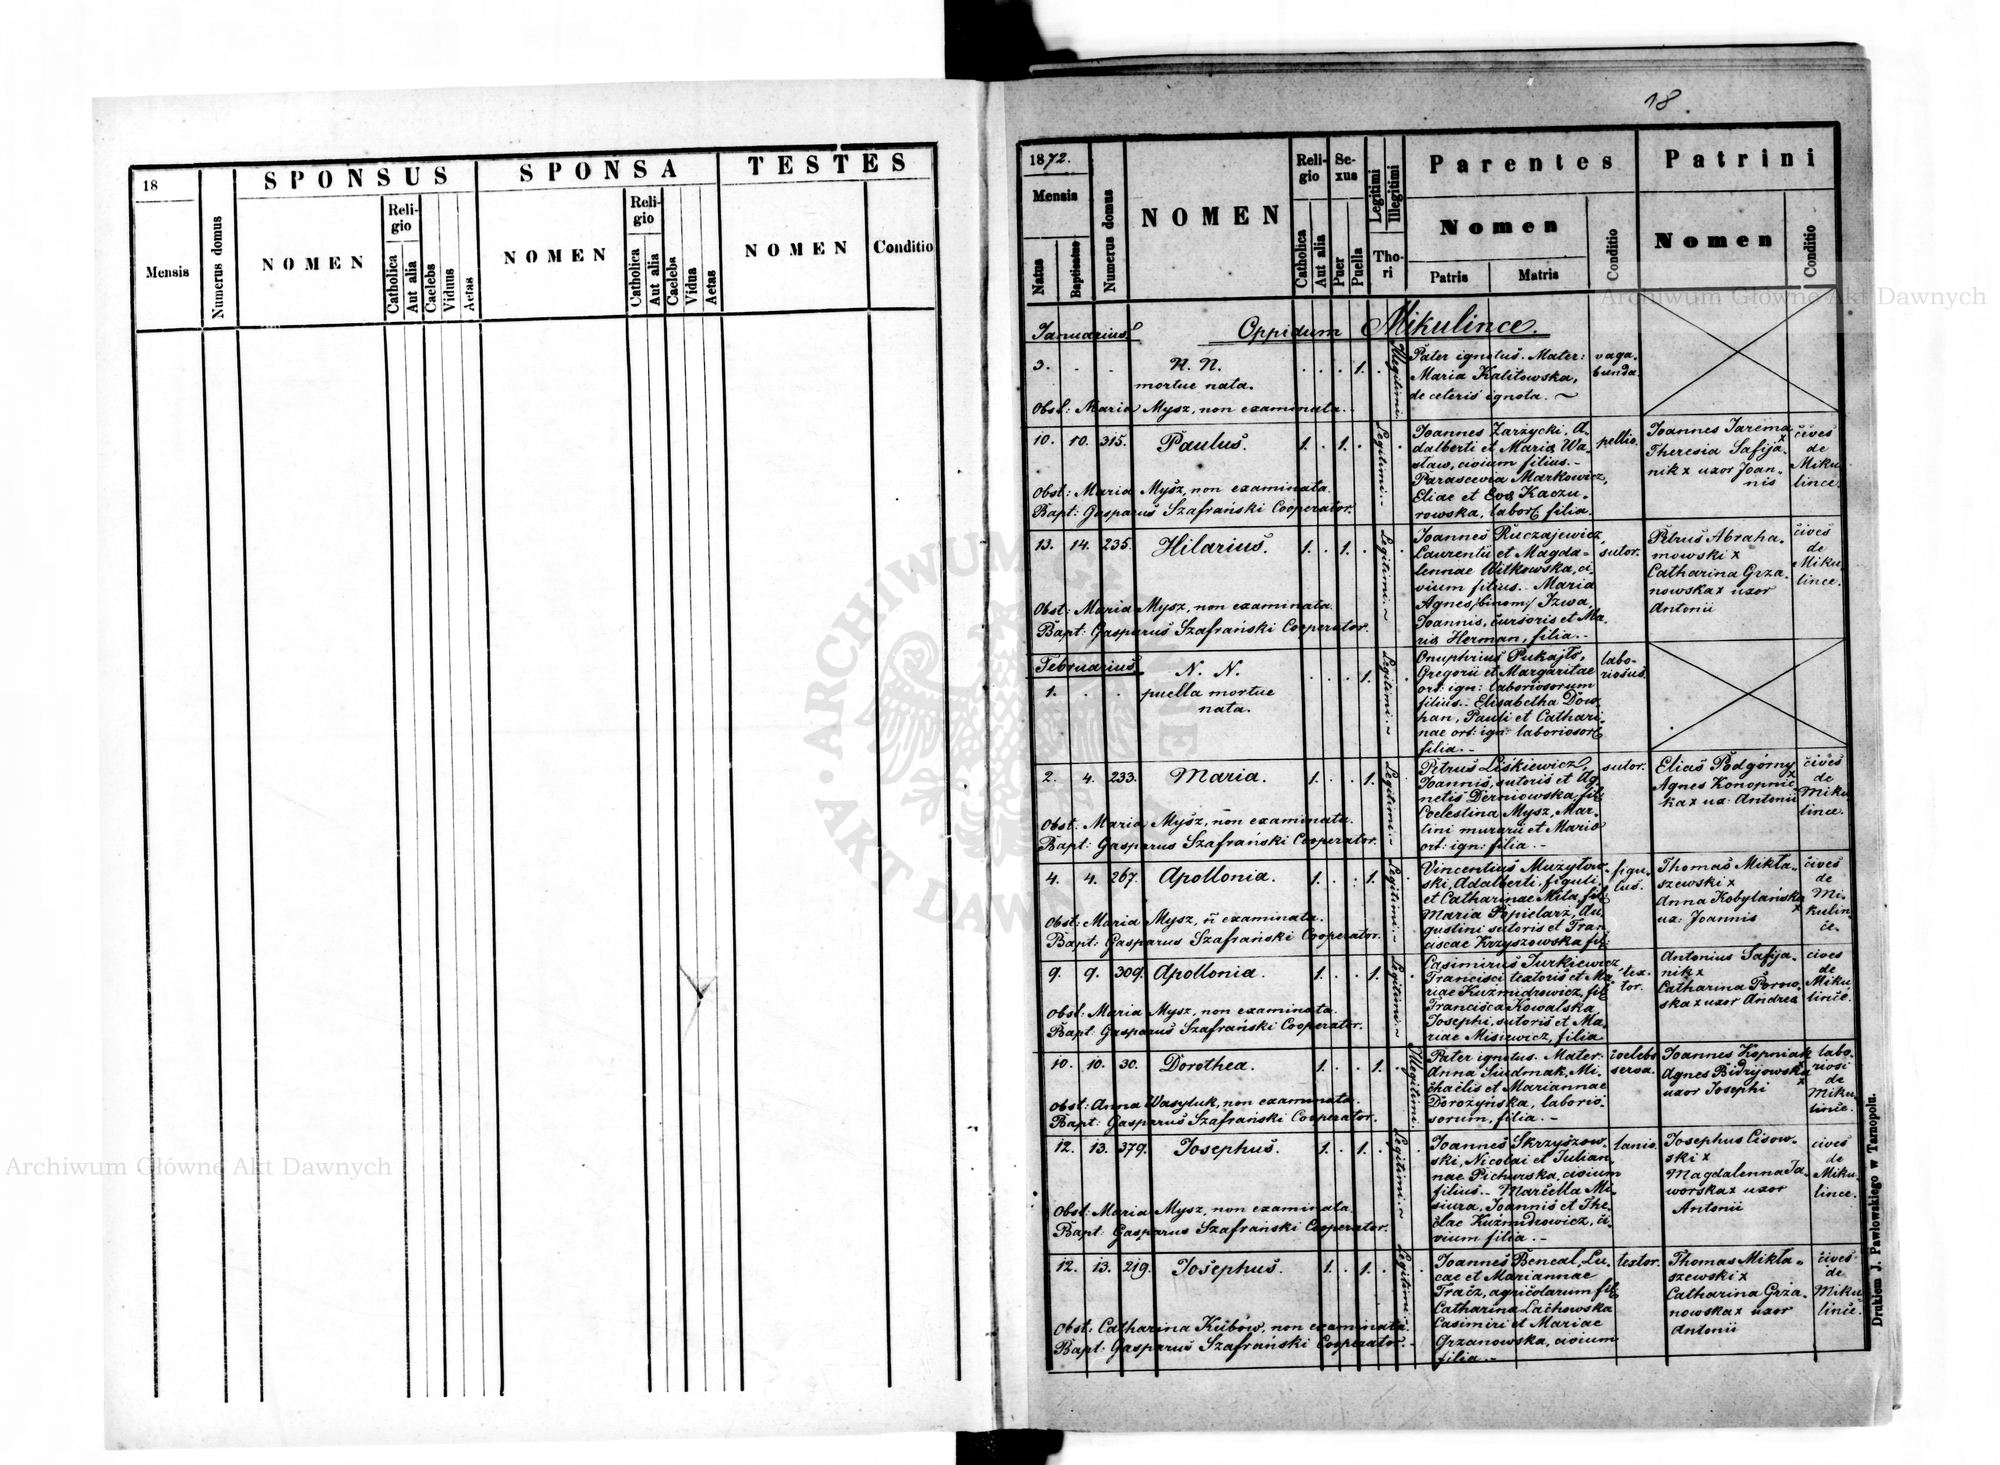 18
Mensis
Numerus domus
SPONSUS
NOMEN
Religio
Catholica
Aut alia
Caelebs
Viduus
Aetas
SPONSA
NOMEN
Religio
Catholica
Aut alia
Caelebs
Vidua
Aetas
TESTES
NOMEN
Conditio
18
1872.
Mensis
Natus
Baptisatus
Numerus domus
NOMEN
Reli-
gio
Catholica
Aut alia
Se-
xus
Puer
Puella
Legitimi
Illegitimi
Tho-
ri
Parentes
Nomen
Patris
Matris
Conditio
Patrini
Nomen
Conditio
Januarius
Oppidum Mikulince.
3.
N. N.
mortue nata.
1.
Illegitimi
Pater ignotus. Mater:
Maria Kalitowska,
de ceteris ignota.
vaga-
bunda.
Obst: Maria Mysz, non examinata.
10. 10. 315. Paulus. 1. 1.
Legitimi
Joannes Zarzycki, A-
dalberti et Maria Wa-
staw, civium filius.-
Parascevia Markowicz,
Eliae et Eva Kaczu-
rowska, labor. filia.
pellio.
Joannes Jarema x
Theresia Safija-
nik x uxor Joan-
nis
cives
de
Miku-
lince.
Obst: Maria Mysz, non examinata.
Bapt: Gasparus Szafrański Cooperator.
13. 14. 235. Hilarius. 1. 1.
Legitimi
Joannes Ruczajewicz,
Laurentii et Magda-
lennae Witkowska, ci-
vium filius.. Maria
Agnes /binom/ Izwa,
Joannis, cursoris et Ma-
ria Herman, filia.-
sutor.
Petrus Abraha-
mowski x
Catharina Grza-
nowska x uxor
Antonii
cives
de
Miku-
lince.
Obst: Maria Mysz, non examinata.
Bapt: Gasparus Szafrański Cooperator.
Februarius
1.
N. N.
puella mortue
nata.
1.
Legitimi
Onuphrius Pukajło,
Gregorii et Margaritae
ort: ign: laboriosorum
filius.- Elisabetha Dow-
han, Pauli et Cathari-
nae ort: ign: laboriosor.
filia.-
labo-
riosus.
2. 4. 233. Maria. 1. 1.
Legitimi
Petrus Liskiewicz,
Joannis, sutoris et Ag-
netis Derniowska, fil:
Coelestina Mysz, Mar-
tini murarii et Maria
ort: ign: filia.-
sutor.
Elias Podgórny x
Agnes Konopnic-
ka x ux: Antonii
cives
de
Miku-
lince.
Obst. Maria Mysz, non examinata.
Bapt: Gasparus Szafrański Cooperator.
4. 4. 267. Apollonia. 1. 1.
Legitimi
Vincentius Muzyłow-
ski, Adalberti, figuli
et Catharinae Mila, fil:
Maria Popielarz, Au-
gustini sutoris et Fran-
ciscae Krzyszowska fil:
figu-
lus.
Thomas Mikła-
szewski x
Anna Kobylańska x
ux: Joannis
cives
de
Mi-
kulin-
ce.
Obst: Maria Mysz, n examinata.
Bapt: Gasparus Szafrański Cooperator.
9. 9. 309. Apollonia. 1. 1.
Legitimi
Casimirus Jurkiewicz
Francisci textoris et Ma-
riae Kuzmidrowicz, fil.
Francisca Kowalska
Josephi, sutoris et Ma-
riae Misiewicz, filia
tex-
tor.
Antonius Safija-
nik x
Catharina Porow-
ska x uxor Andrea
cives
de
Miku-
lince.
Obst: Maria Mysz, non examinata.
Bapt: Gasparus Szafrański Cooperator.
10. 10. 30. Dorothea. 1. 1.
Illegitimi
Pater ignotus. Mater:
Anna Siudmak, Mi-
chaelis et Mariannae
Dorożyńska, laborio-
sorum, filia.-
coelebs
serva.
Joannes Kopniak
Agnes Bidzyjowska x
uxor Josephi
labo-
riosi
de
Miku-
lince.
Obst: Anna Wasyluk, non examinata.
Bapt: Gasparus Szafrański Cooperator.
12. 13. 379. Josephus. 1. 1.
Legitimi
Joannes Skrzyszow-
ski, Nicolai et Julian-
nae Pichurska, civium
filius.- Marcella Mi-
siura, Joannis et The-
clae Kuzmidrowicz, ci-
vium filia.-
lanio.
Josephus Cisow-
ski x
Magdalenna Ja-
worska x uxor
Antonii
cives
de
Miku-
lince.
Obst: Maria Mysz, non examinata.
Bapt: Gasparus Szafrański Cooperator.
12. 13. 219. Josephus. 1. 1.
Legitimi
Joannes Bencal, Lu-
cae et Mariannae
Tracz, agricolarum fil.
Catharina Lachowska
Casimiri et Mariae
Grzanowska, civium
filia.-
textor.
Thomas Mikła-
szewski x
Catharina Grza-
nowska x uxor
Antonii
cives
de
Miku-
lince.
Obst: Catharina Kubów, non examinata.
Bapt: Gasparus Szafrański Cooperator.
Drukiem J. Pawłowskiego w Tarnopolu.
Archiwum Główne Akt Dawnych
Archiwum Główne Akt Dawnych
ARCHIWUM GŁÓWNE AKT DAWNYCH